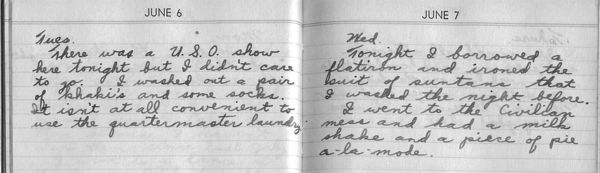 JUNE 6
Tues.
There was a U.S.O. show
here tonight but I didn't care
to go. I washed out a pair
of Khaki's and some socks.
It isn't at all convenient to
use the quartermaster laundry.
JUNE 7
Wed.
Tonight I borrowed a
flatiron and ironed the
suit of suntans that
I washed the night before.
I went to the Civilian
mess and had a milk
shake and a piece of pie
a-la-mode.